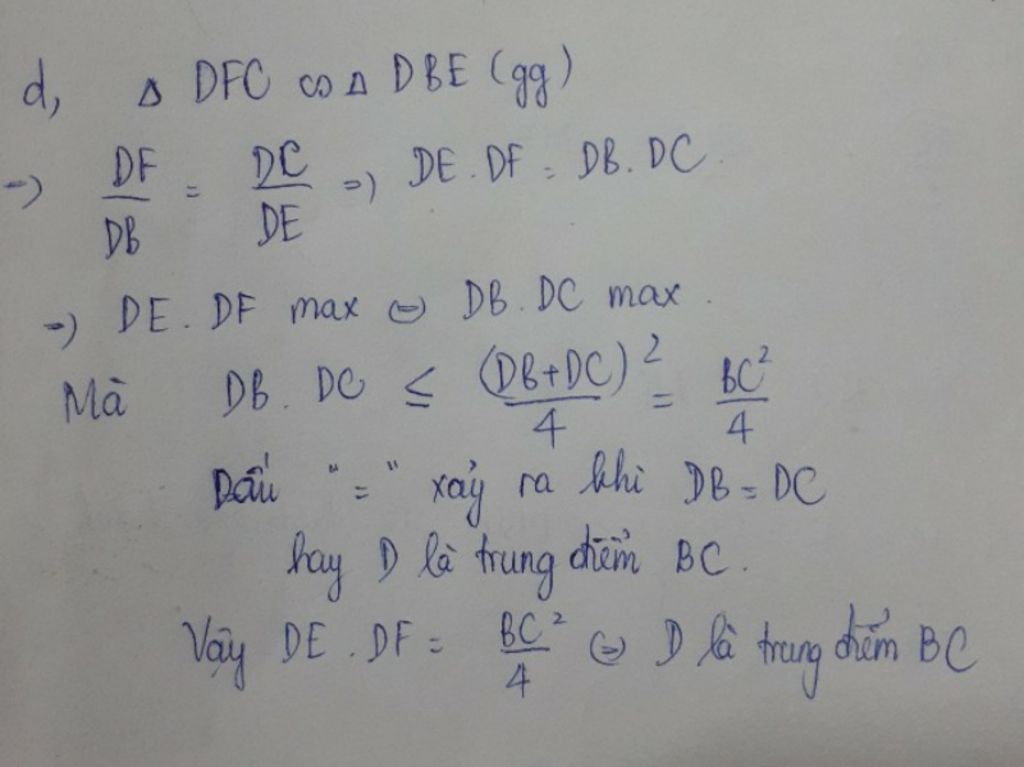 d, Δ DFC ∽ Δ DBE (gg)
=) DF/DB = DC/DE =) DE . DF = DB . DC
=) DE . DF max (=) DB . DC max .
Mà DB . DC ≤ (DB+DC)²/4 = BC²/4
Dấu "=" xảy ra khi DB = DC
hay D là trung điểm BC .
Vậy DE . DF = BC²/4 (=) D là trung điểm BC